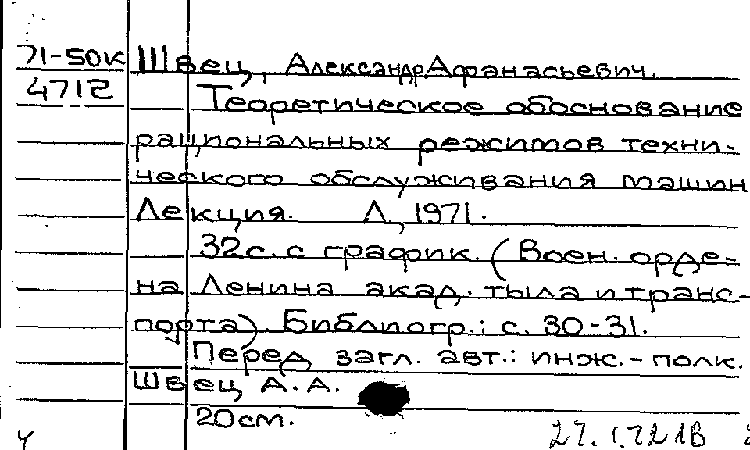 71-50к Швец, Александр Афанасьевич.
4712 Теоретическое обоснование
рациональных режимов техни-
ческого обслуживания машин
Лекция. Л, 1971.
32с. с график. (Воен. орде-
на Ленина акад. тыла и транс-
порта) Библиогр.: с. 30-31.
Перед загл. авт.: инж.-полк.
Швец А.А.
20см.